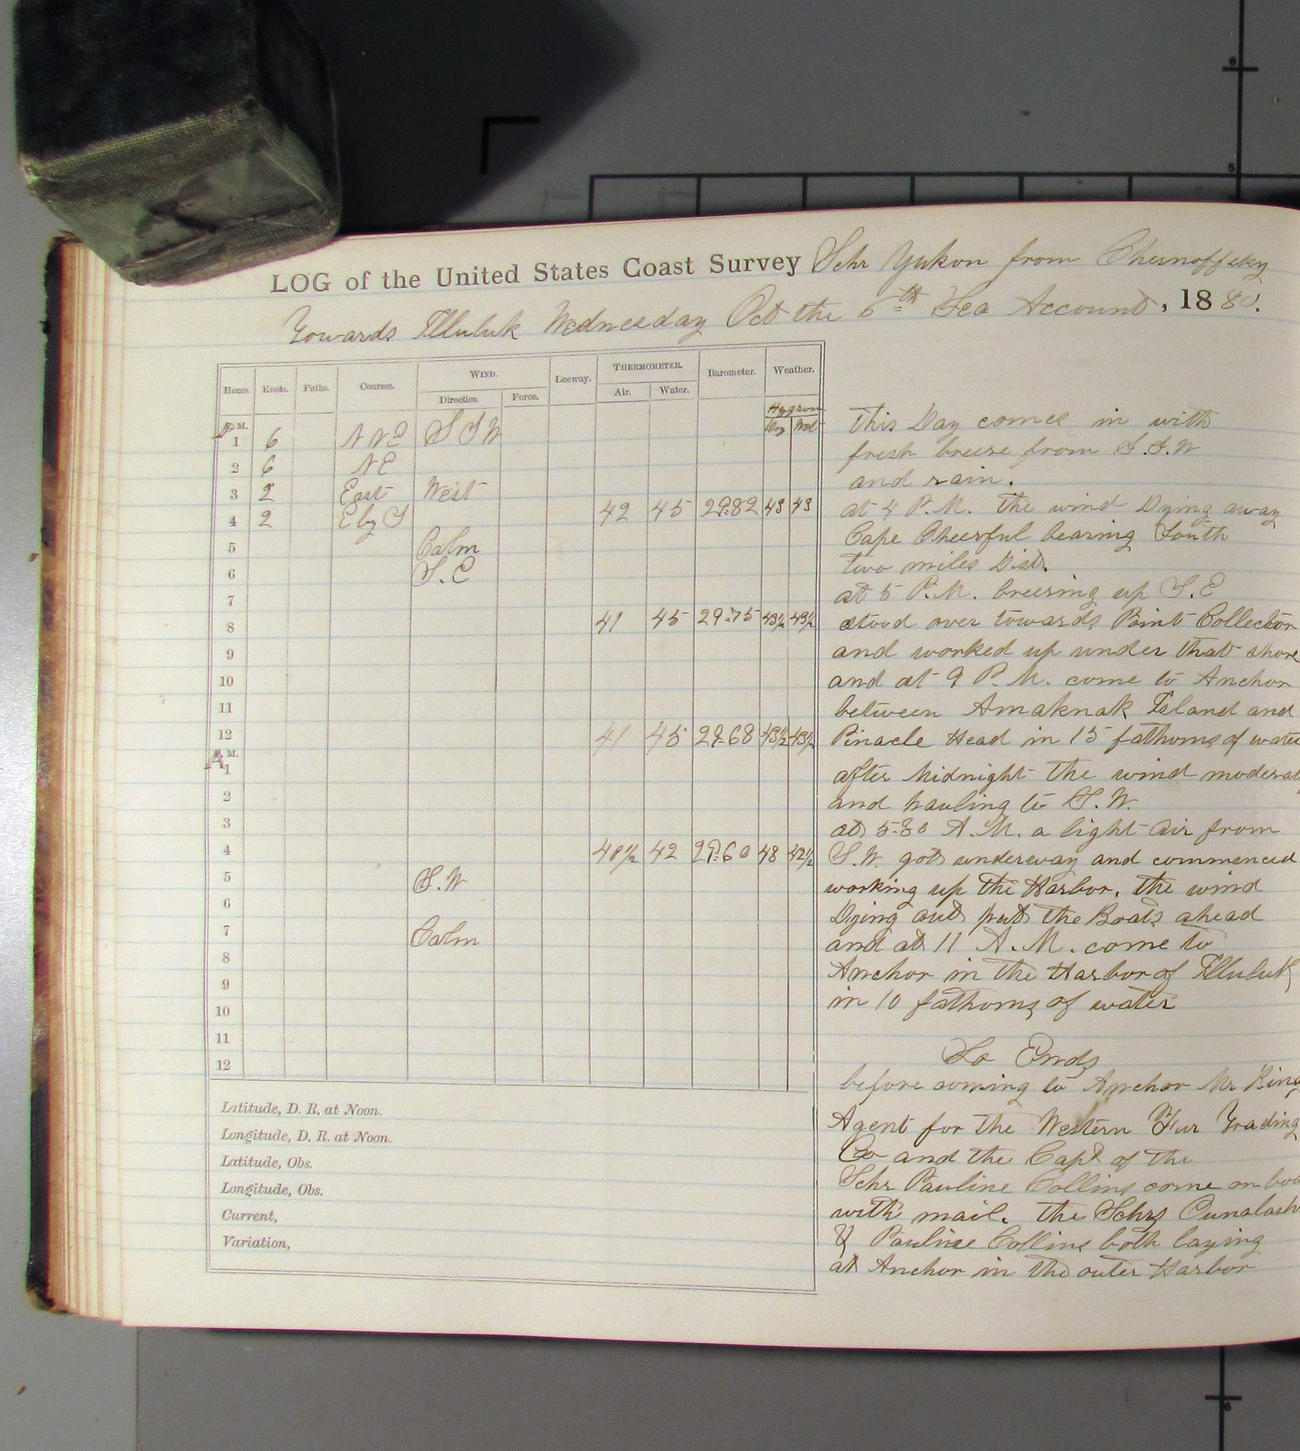 LOG of the United States Coast Survey Schr Yukon from Chernoffsky
Towards Illuluk Wednesday Oct the 6th Sea Account, 1880.
Hours. Knots. Faths. Courses. WIND. Leeway. THERMOMETER. Barometer. Weather.
Direction Force. Air. Water.
Hygrom
P.M. Dry Wet
1 6 NNE SSW
2 6 NE
3 2 East West
4 2 E by S 42 45 29.82 43 43
5 Calm
6 S.E
7
8 41 45 29.75 43½ 43½
9
10
11
12 41 45 29.68 43½ 43½
A.M.
1
2
3
4 40½ 42 29.60 43 42½
5 S.W
6
7 Calm
8
9
10
11
12
Latitude, D. R. at Noon.
Longitude, D. R. at Noon.
Latitude, Obs.
Longitude, Obs.
Current,
Variation,
This Day comes in with
fresh breese from S.S.W
and rain.
at 4 P.M. the wind Dying away
Cape Cheerful bearing South
two miles Dist.
at 5 P.M. breesing up S.E
stood over towards Point Collector
and worked up under that shore
and at 9 P.M. come to Anchor
between Amaknak Island and
Pinacle Head in 15 fathoms of water
after Midnight the wind moderat
and hauling to S.W.
at 5-30 A.M. a light air from
S.W. got underway and commenced
working up the Harbor. the wind
Dying out put the Boats ahead
and at 11 A.M. come to
Anchor in the Harbor of Illuluk
in 10 fathoms of water
So Ends
before coming to Anchor Mr King
Agent for the Western Fur Trading
Co and the Capt of the
Schr Pauline Collins come on boa
with mail. the Schrs Ounalash
& Pauline Collins both laying
at Anchor in the outer Harbor